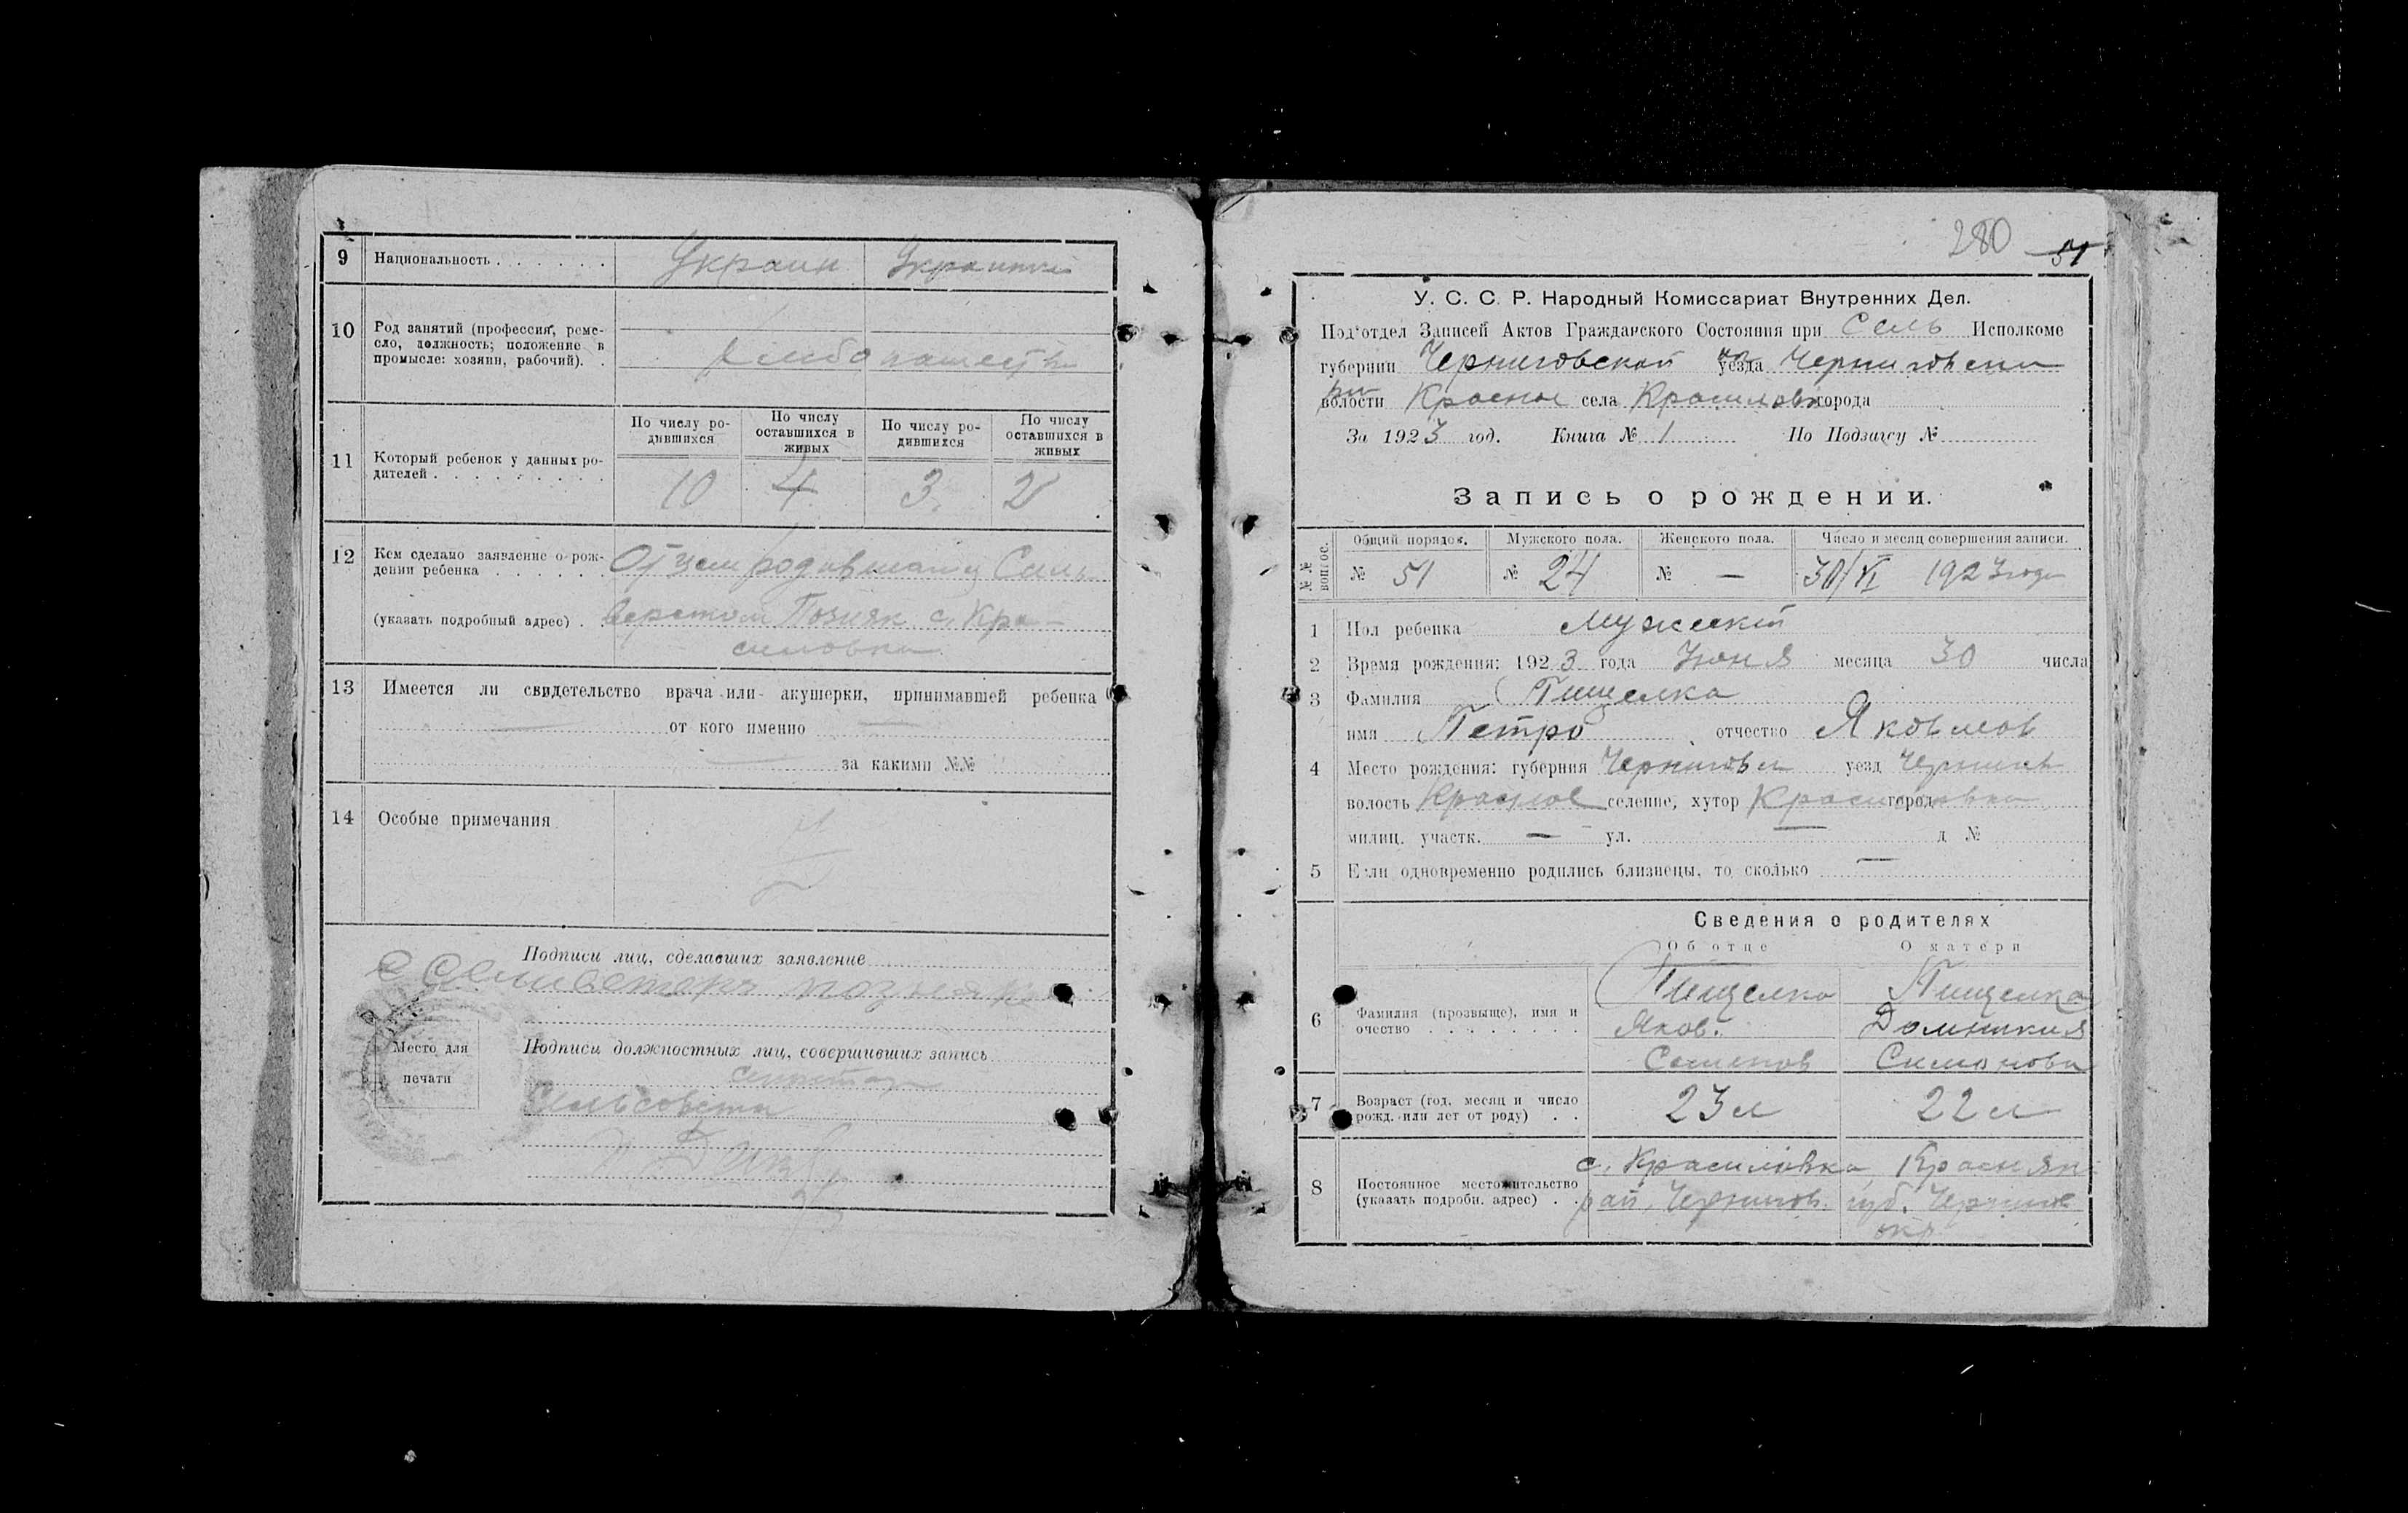 9 Национальность Украин Украинка
10 Род занятий (профессия, реме-
сло, должность; положение в
промысле: хозяин, рабочий).
Хлебопашество
По числу ро-
дившихся
По числу
оставшихся в
живых
По числу ро-
дившихся
По числу
оставшихся в
живых
11 Который ребенок у данных ро-
дителей
10 4 3 2
12 Кем сделано заявление о рож-
дении ребенка
(указать подробный адрес)
Отцем родившагося Силь
верстом Позняк с. Кра-
силовка
13 Имеется ли свидетельство врача или акушерки, принимавшей ребенка
от кого именно
за какими №№
14 Особые примечания
Подписи лиц, сделавших заявление
позняк
Место для
печати
Подписи должностных лиц, совершивших запись
секретарь
Сельсовета
280 51
У. С. С. Р. Народный Комиссариат Внутренних Дел.
Под'отдел Записей Актов Гражданского Состояния при Сель Исполкоме
губернии Черниговской уезда Черниговски
волости Красное села Красиловка города
За 1923 год. Книга № 1 По Подзагсу №
Запись о рождении.
№№ вопрос.
Общий порядок. Мужского пола. Женского пола. Число и месяц совершения записи.
№ 51 № 24 № — 30/VI 1923 года
1 Пол ребенка Мужеский
2 Время рождения: 1923 года Июня месяца 30 числа
3 Фамилия Пищелка
имя Петро отчество Яковлев
4 Место рождения: губерния Черниговск уезд Чернигов
волость Красное селение, хутор Красиловка город
милиц. участк. — ул. — д №
5 Если одновременно родились близнецы, то сколько —
Сведения о родителях
Об отце О матери
6 Фамилия (прозвыще), имя и
очество
Пищелка Пищелка
Яков. Домникия
Семенов Симонова
7 Возраст (год, месяц и число
рожд. или лет от роду)
23 л 22 л
8 Постоянное местожительство
(указать подробн. адрес)
с. Красиловка Краснян
рай. Чернигов. губ. Чернигов
окр.